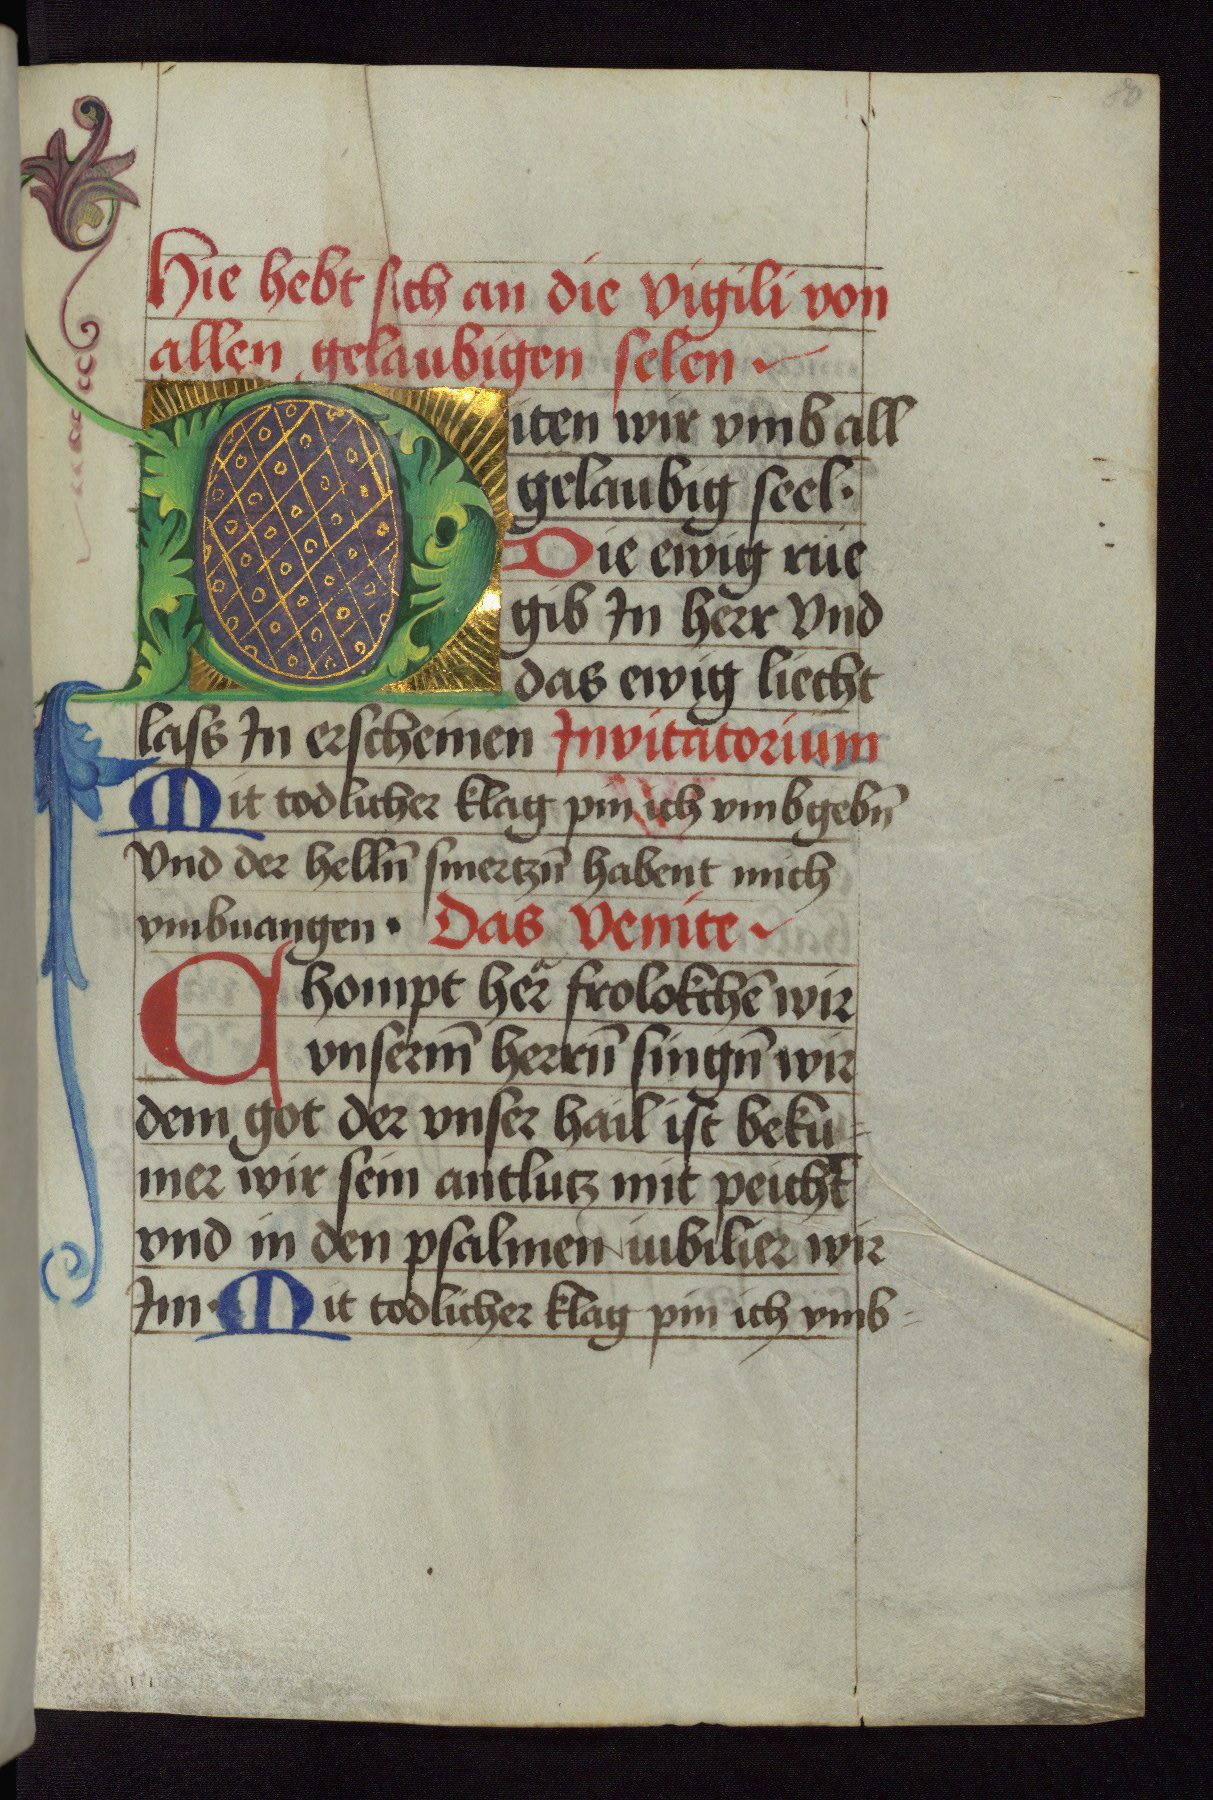 Hie hebt sich an die vigili von
allen gelaubigen selen
Piten wir vmb all
gelaubig seel·
Die ewig rue
gib In herr Vnd
das ewig liecht
lass In erscheinen Invitatorium
Mit todlicher klag pin ich vmbgebn̄
Vnd der helln̄ smertzn̄ habent mich
vmbuangen· Das Venite
Chompt her frolokchē wir
vnserm̄ herrn̄ singn̄ wir
dem got der vnser hail ist bekū=
mer wir sein antlutz mit peicht
vnd in den psalmen iubilier wir
Im· Mit todlicher klag pin ich vmb-